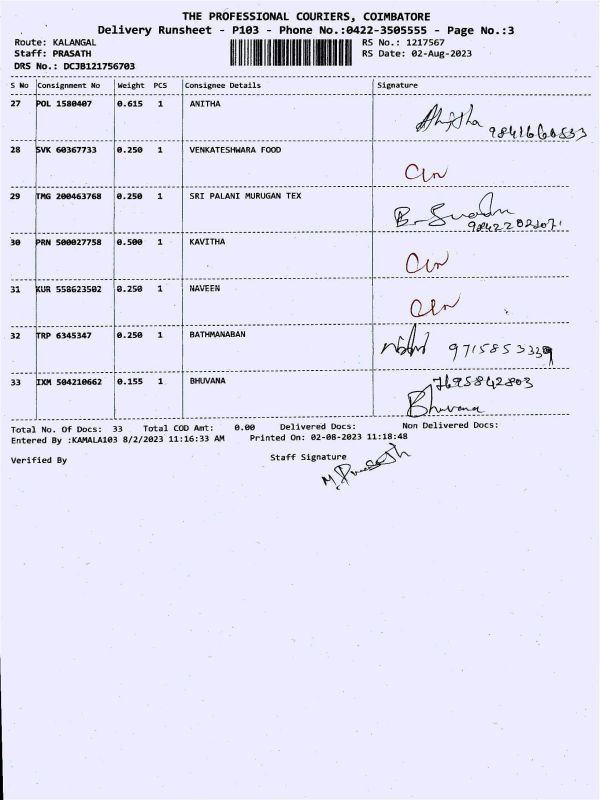 THE PROFESSIONAL COURIERS, COIMBATORE
Delivery Runsheet - P103 - Phone No.:0422-3505555 - Page No.:3
Route: KALANGAL RS No.: 1217567
Staff: PRASATH RS Date: 02-Aug-2023
DRS No.: DCJB121756703
S No Consignment No Weight PCS Consignee Details Signature
27 POL 1580407 0.615 1 ANITHA
Anitha
28 SVK 60367733 0.250 1 VENKATESHWARA FOOD
29 TMG 200463768 0.250 1 SRI PALANI MURUGAN TEX
30 PRN 500027758 0.500 1 KAVITHA
31 KUR 558623502 0.250 1 NAVEEN
32 TRP 6345347 0.250 1 BATHMANABAN
9715853339
33 IXM 504210662 0.155 1 BHUVANA
7695842803
Bhuvana
Total No. Of Docs: 33 Total COD Amt: 0.00 Delivered Docs: Non Delivered Docs:
Entered By :KAMALA103 8/2/2023 11:16:33 AM Printed On: 02-08-2023 11:18:48
Verified By Staff Signature
M. Prasath